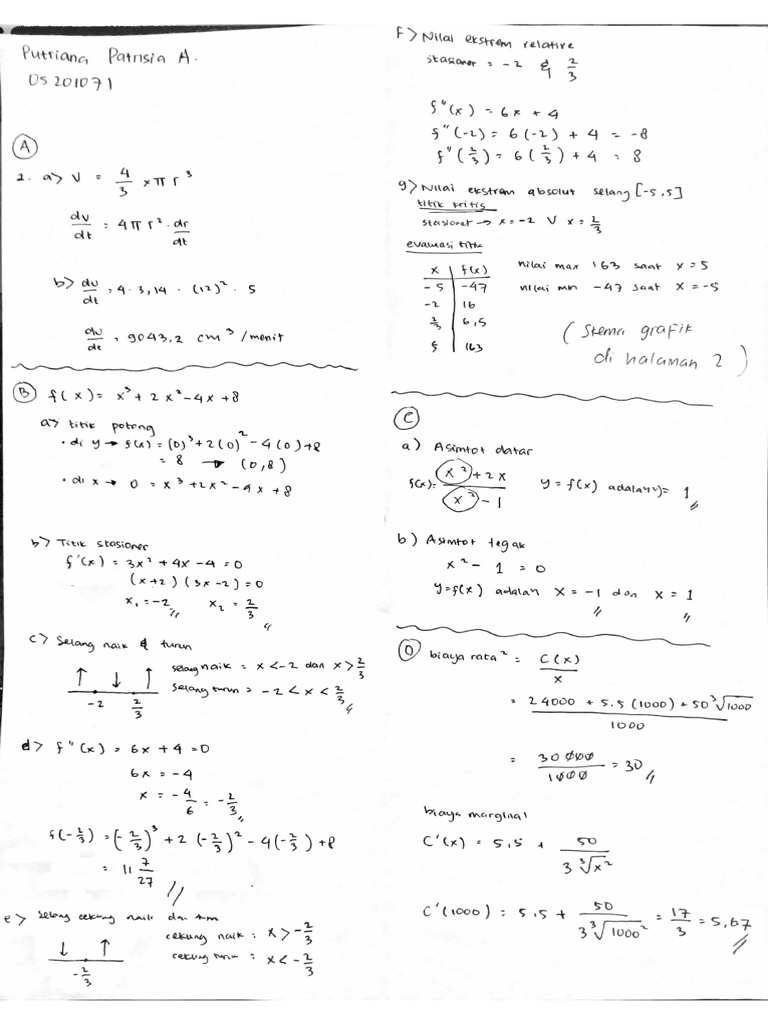 Putriana Patrisia A.
05201071
(A)
2. a> V = 4/3 × π r³
dv/dt = 4 π r² · dr/dt
b> dv/dt = 4 · 3,14 · (12)² · 5
dv/dt = 9043,2 cm³/menit
(B) f(x) = x³ + 2x² - 4x + 8
a> titik potong
• di y → f(x) = (0)³ + 2(0)² - 4(0) + 8
= 8 → (0,8)
• di x → 0 = x³ + 2x² - 4x + 8
b> Titik stasioner
f'(x) = 3x² + 4x - 4 = 0
(x+2) (3x-2) = 0
x₁ = -2 x₂ = 2/3
c> Selang naik & turun
↑ ↓ ↑
-2 2/3
selang naik = x < -2 dan x > 2/3
selang turun = -2 < x < 2/3
d> f"(x) = 6x + 4 = 0
6x = -4
x = -4/6 = -2/3
f(-2/3) = (-2/3)³ + 2(-2/3)² - 4(-2/3) + 8
= 11 7/27
e> Selang cekung naik dan turun
↓ ↑
-2/3
cekung naik = x > -2/3
cekung turun = x < -2/3
F> Nilai ekstrem relative
stasioner = -2 & 2/3
f"(x) = 6x + 4
f"(-2) = 6(-2) + 4 = -8
f"(2/3) = 6(2/3) + 4 = 8
g> Nilai ekstrem absolut selang [-5,5]
titik kritis
stasioner → x = -2 V x = 2/3
evaluasi titik
x | f(x)
-5 | -47
-2 | 16
2/3 | 6,5
5 | 163
nilai max 163 saat x = 5
nilai min -47 saat x = -5
(Skema grafik
di halaman 2)
(C)
a) Asimtot datar
f(x) = x² + 2x / x² - 1 y = f(x) adalah y = 1
b) Asimtot tegak
x² - 1 = 0
y = f(x) adalah x = -1 dan x = 1
(D) biaya rata² = C(x)/x
= 24000 + 5.5 (1000) + 50 ³√1000 / 1000
= 30000/1000 = 30
biaya marginal
C'(x) = 5,5 + 50 / 3 ³√x²
C'(1000) = 5.5 + 50 / 3 ³√1000² = 17/3 = 5,67